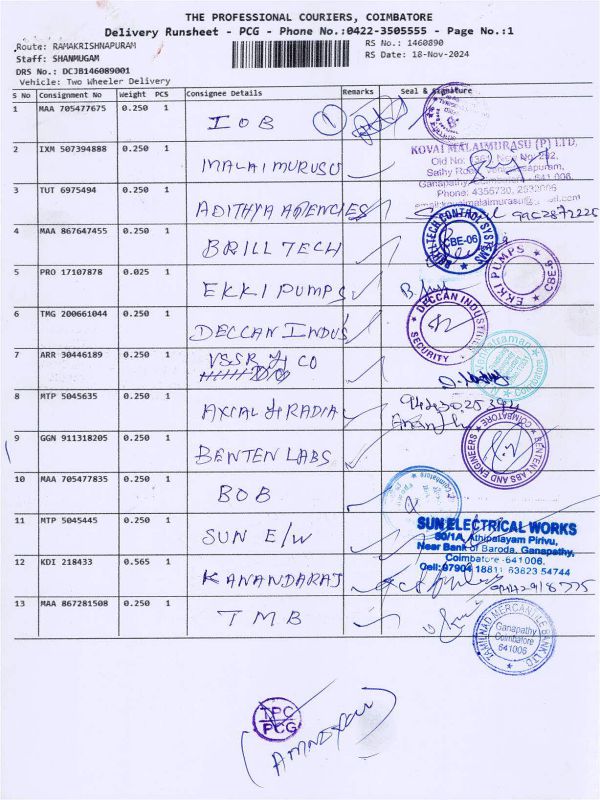 THE PROFESSIONAL COURIERS, COIMBATORE
Delivery Runsheet - PCG - Phone No.:0422-3505555 - Page No.:1
Route: RAMAKRISHNAPURAM RS No.: 1460890
Staff: SHANMUGAM RS Date: 18-Nov-2024
DRS No.: DCJB146089001
Vehicle: Two Wheeler Delivery
S No Consignment No Weight PCS Consignee Details Remarks Seal & Signature
1 MAA 705477675 0.250 1 IOB 1
2 IXM 507394888 0.250 1 MALAIMURUSU
KOVAI MALAIMURASU (P) LTD,
3 TUT 6975494 0.250 1 ADITHYA AGENCIES
4 MAA 867647455 0.250 1 BRILL TECH
CBE-06
5 PRO 17107878 0.025 1 EKKI PUMPS
EKKI PUMPS
6 TMG 200661044 0.250 1 DECCAN INDUS
DECCAN INDUSTRI
SECURITY
7 ARR 30446189 0.250 1 VSSR & CO
8 MTP 5045635 0.250 1 AXIAL & RADIA
9 GGN 911318205 0.250 1 BENTEN LABS
BENTEN LABS AND ENGINEERS
COIMBATORE
10 MAA 705477835 0.250 1 BOB
11 MTP 5045445 0.250 1 SUN E/W
SUN ELECTRICAL WORKS
80/1A, Athipalayam Pirivu,
Near Bank of Baroda, Ganapathy,
Coimbatore-641006.
Cell: 97904 18811, 63823 54744
12 KDI 218433 0.565 1 KANANDARAJ
13 MAA 867281508 0.250 1 TMB
TAMILNAD MERCANTILE BANK LTD
Ganapathy
Coimbatore
641006
TPC
PCG